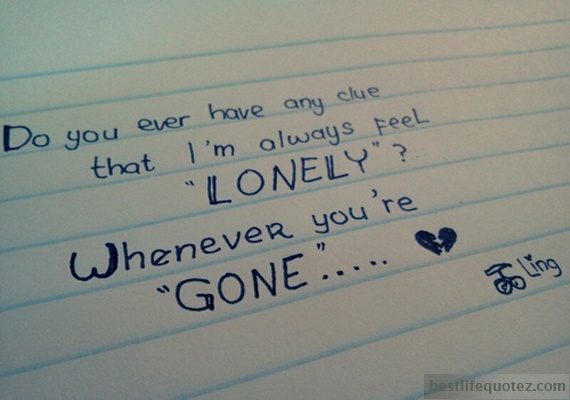 Do you ever have any clue
that I'm always FEEL
"LONELY"?
Whenever you're
"GONE".....
Ling
bestlifequotez.com